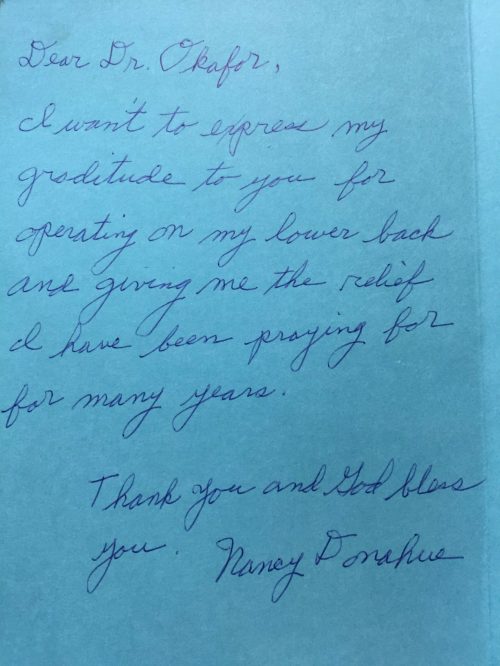 Dear Dr. Okafor,
I wan't to express my
graditude to you for
operating on my lower back
and giving me the relief
I have been praying for
for many years.
Thank you and God bless
you. Nancy Donahue